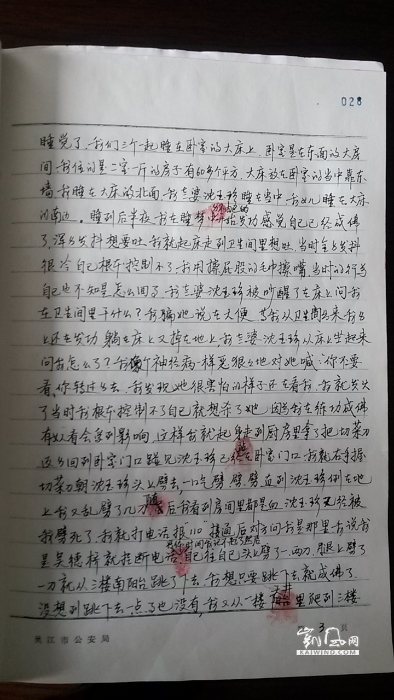 028
睡觉了。我们三个一起睡在卧室的大床上,卧室是在东面的大房
间,我住的是二室一厅的房子有60多个平方,大床放在卧室的当中靠东
墙,我睡在大床的北面,我老婆沈玉珍睡在当中,我女儿睡在大床
的南边。睡到后半夜,我在睡梦中开始发功感觉自己已经成佛
了,浑身发抖想要吐,我就起床走到卫生间里想吐,当时全身发抖
很冷自己根本控制不了,我用擦屁股的毛巾擦嘴,当时的行为
自己也不知是怎么回事,我老婆沈玉珍被吵醒了在床上问我
在卫生间里干什么?我骗她说在大便,等我从卫生间出来我身
上还在发功,躺在床上又掉在地上,我老婆沈玉珍从床上坐起来
问我怎么了?我像个神经病一样恶狠狠地对她喊:你不要
看,你转过身去。我发现她很害怕的样子还在看我,我就发火
了当时我根本控制不了自己就想杀了她,因为我在练功成佛
有人看会受到影响,这样我就起身走到厨房里拿了把切菜刀
返身回到卧室门口碰见沈玉珍已经在卧室门口,我就右手握
切菜刀朝沈玉珍头上劈去,一口气劈劈劈直到沈玉珍倒在地
上,我又乱劈了几刀,后我看到房间里都是血,沈玉珍已经被
我劈死了,我就打电话报“110”接通后对方问我是那里,我说我
是吴穗桦就挂断电话,自己往自己头上劈了一两刀,腿上劈了
一刀就从三楼南阳台跳了下去,我想只要跳下去就成佛了,
没想到跳下去一点事也没有,我又从一楼爬到三楼
吴江市公安局
3 页
凯风网
KAIWIND.COM